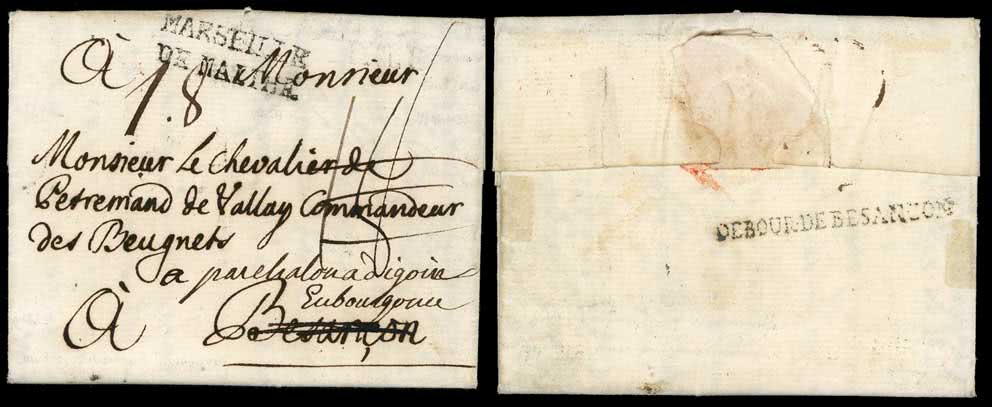 MARSEILLE
DE MALTHE
À Monsieur
18
Monsieur Le Chevalier de
Petremand de Vallay Commandeur
des Beugnets
a par chalon a digoin
En bourgonne
À Besançon
DEBOUR·DE BESANZON